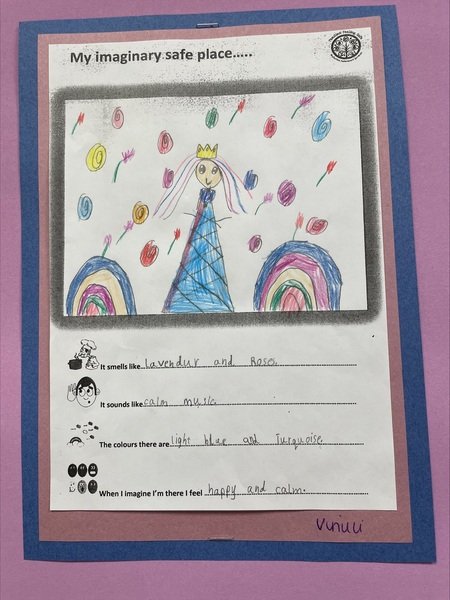 My imaginary safe place.....
It smells like lavendur and Roses.
It sounds like calm music.
The colours there are light blue and Turquoise.
When I imagine I'm there I feel happy and calm.